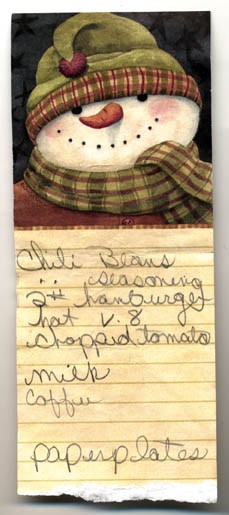 Chili Beans
" seasoning
3# hamburger
hot V.8
chopped tomato
milk
coffee
paperplates